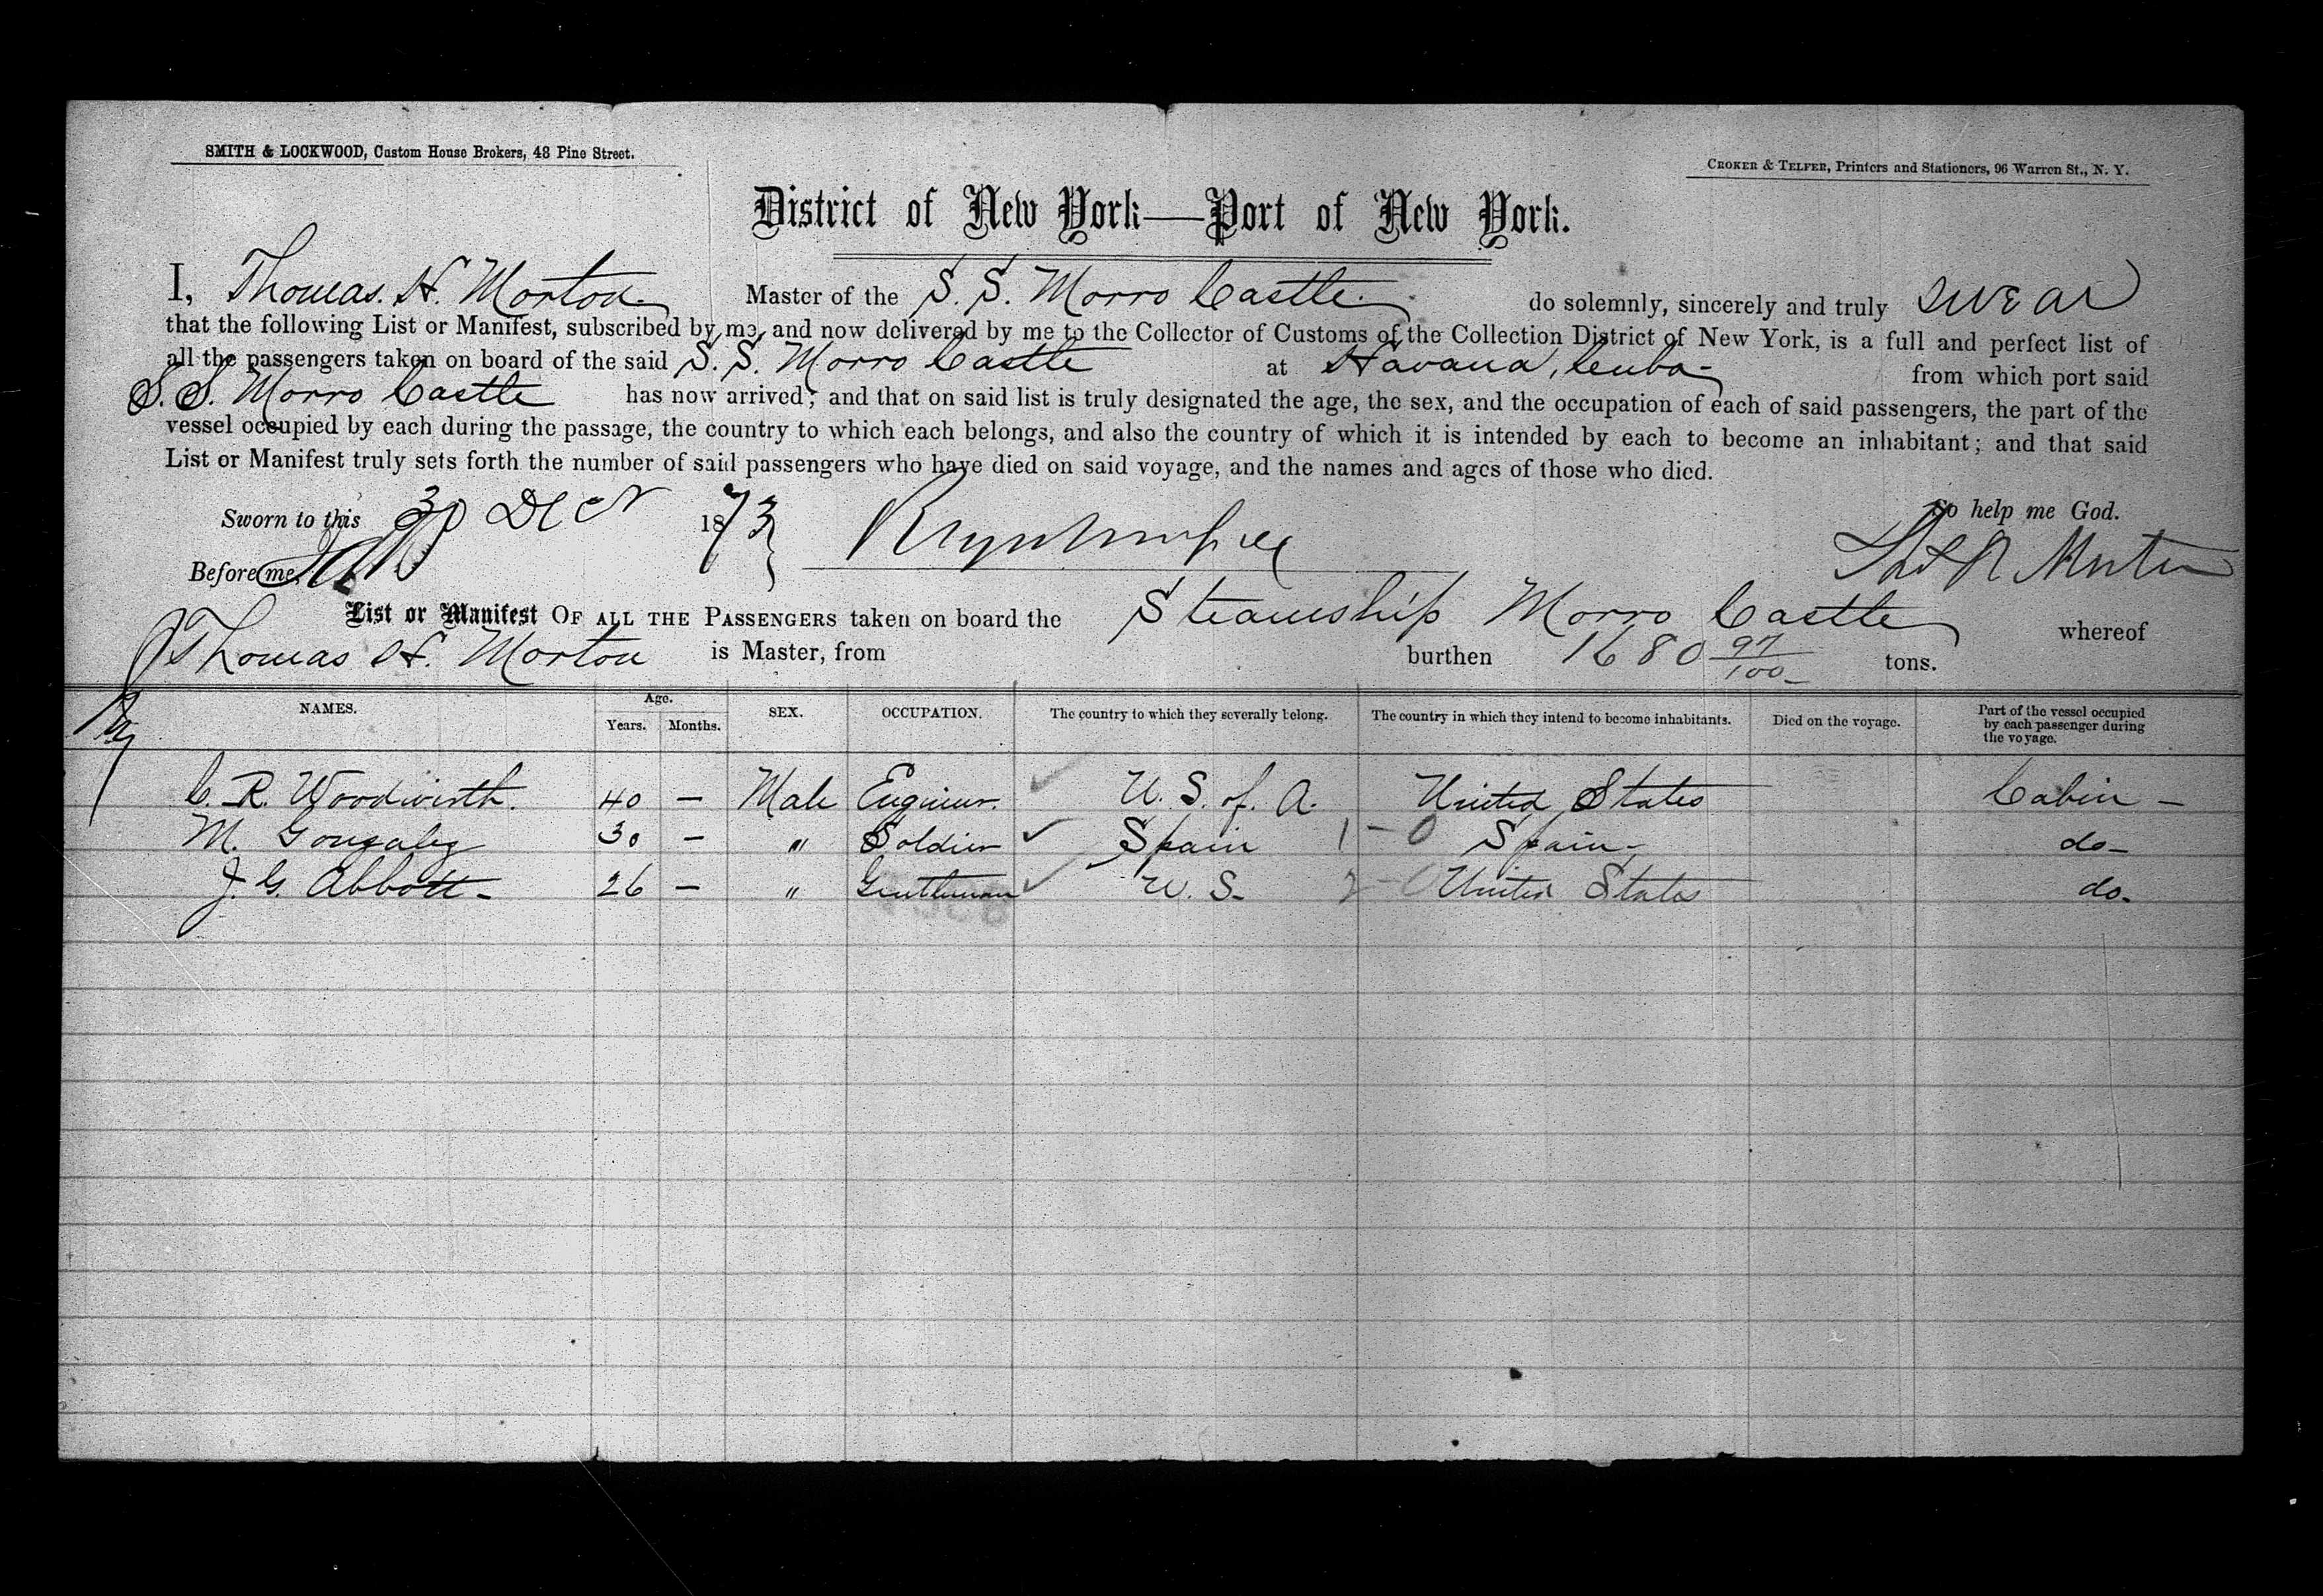 SMITH & LOCKWOOD, Custom House Brokers, 48 Pine Street.
CROKER & TELFER, Printers and Stationers, 96 Warren St., N. Y.
District of New York—Port of New York.
I, Thomas. H. Morton Master of the S. S. Morro Castle. do solemnly, sincerely and truly swear
that the following List or Manifest, subscribed by me, and now delivered by me to the Collector of Customs of the Collection District of New York, is a full and perfect list of
all the passengers taken on board of the said S. S. Morro Castle at Havana, Cuba- from which port said
S. S. Morro Castle has now arrived; and that on said list is truly designated the age, the sex, and the occupation of each of said passengers, the part of the
vessel occupied by each during the passage, the country to which each belongs, and also the country of which it is intended by each to become an inhabitant; and that said
List or Manifest truly sets forth the number of said passengers who have died on said voyage, and the names and ages of those who died.
Sworn to this 30 Decr 1873 So help me God.
Before me,
List or Manifest OF ALL THE PASSENGERS taken on board the Steamship Morro Castle whereof
Thomas H. Morton is Master, from burthen 1680 97/100 tons.
NAMES. Age. Years. Months. SEX. OCCUPATION. The country to which they severally belong. The country in which they intend to become inhabitants. Died on the voyage. Part of the vessel occupied by each passenger during the voyage.
C. R. Woodworth. 40 — Male Engineer. U. S. of. A. United States Cabin —
M. Gonzalez 30 — " Soldier Spain 1 - 0 Spain- do-
J. G. Abbott- 26 — " Gentleman U. S- 2 - 0 United States do-